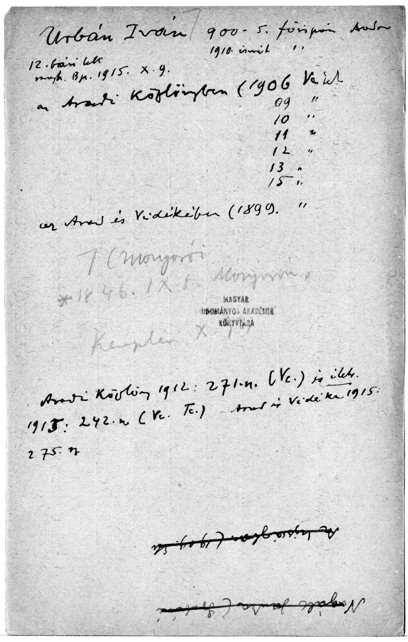 Urbán Iván 900-5. főispán Aradon
1910. ismét "
12. bárói lett
megh. Bp. 1915. X. 9.
az Aradi Közlönyben (1906 Vc.
09 "
10 "
11 "
12 "
13 "
15 "
az Arad és Vidékében (1899. "
T (Monyorói
*1846. IX. 8. Monyoró,
MAGYAR
TUDOMÁNYOS AKADÉMIA
KÖNYVTÁRA
Kempelen X.
Aradi Közlöny 1912: 271. n. (Vc.) is
1915: 242. n (Vc. Tc.) Arad és Vidéke 1915:
275. n